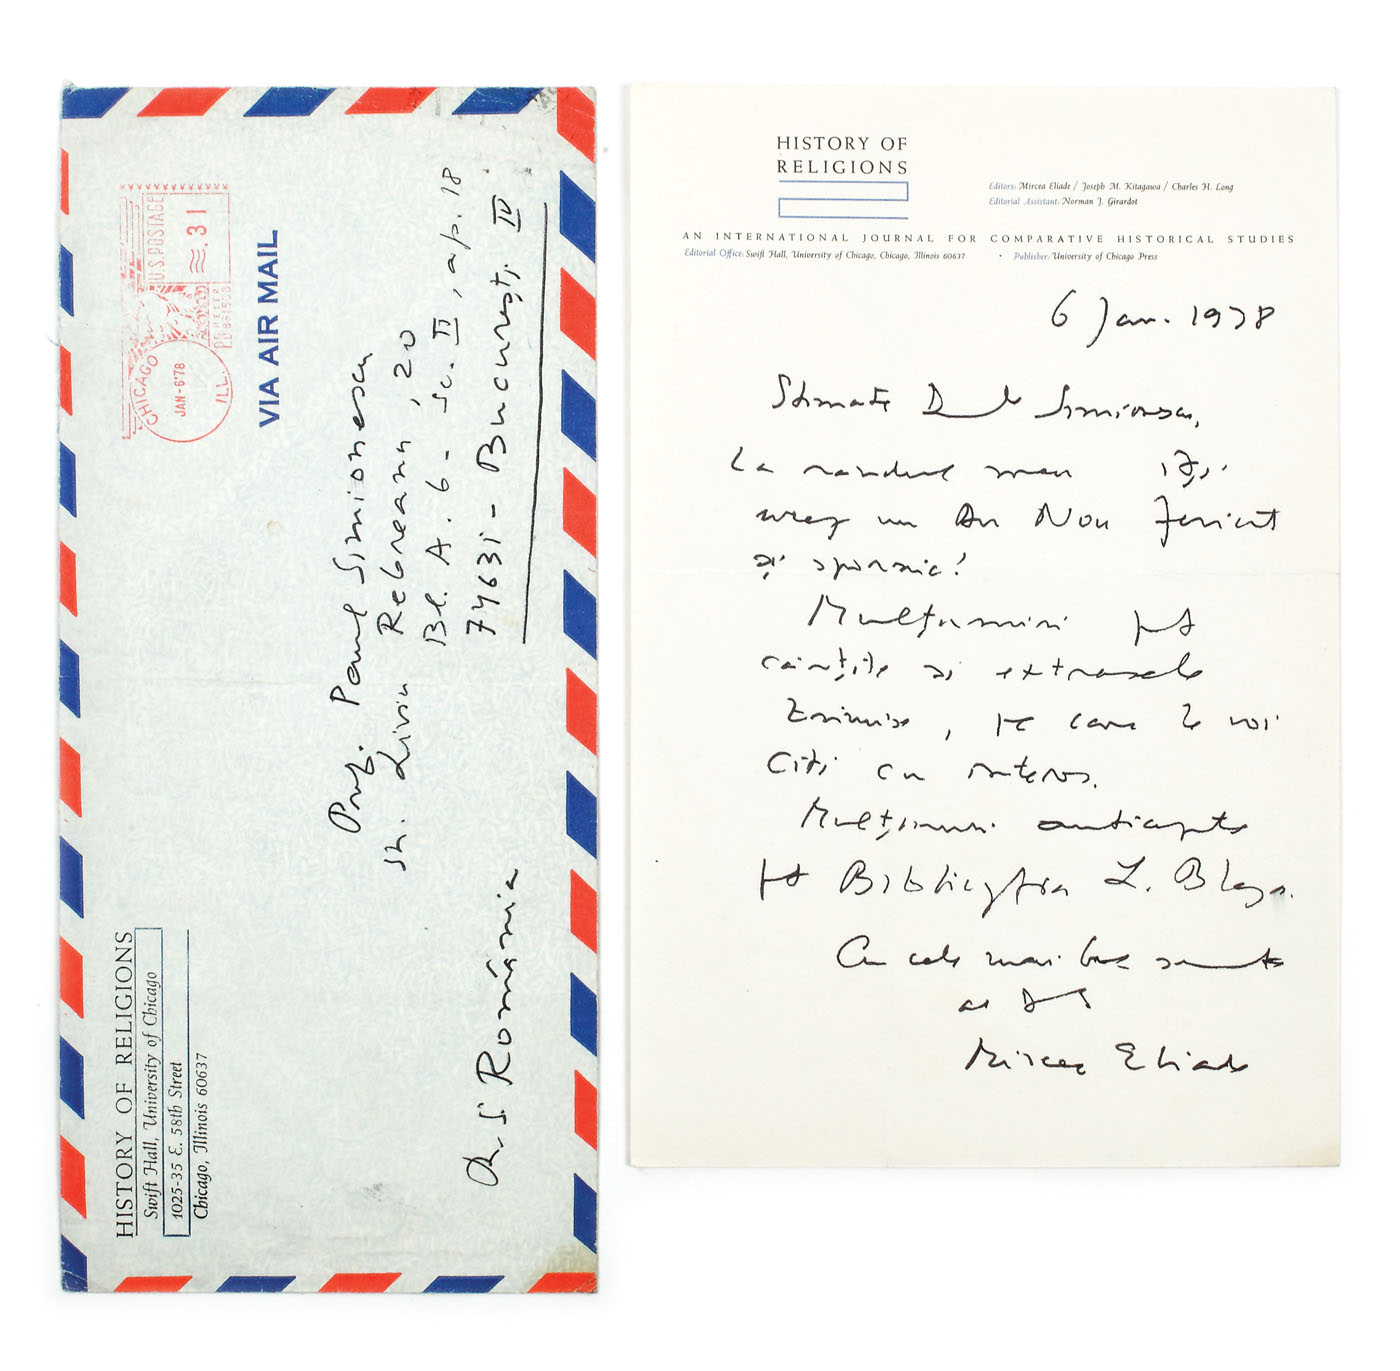 HISTORY OF RELIGIONS
Swift Hall, University of Chicago
1025-35 E. 58th Street
Chicago, Illinois 60637
U.S. POSTAGE
.31
CHICAGO
JAN-6'78
ILL.
VIA AIR MAIL
Prof. Paul Simionescu
str. Liviu Rebreanu, 20
Bl. A. 6 - sc. II, ap. 18
74631 - București. IV
R. S. România
HISTORY OF
RELIGIONS
Editors: Mircea Eliade / Joseph M. Kitagawa / Charles H. Long
Editorial Assistant: Norman J. Girardot
AN INTERNATIONAL JOURNAL FOR COMPARATIVE HISTORICAL STUDIES
Editorial Office: Swift Hall, University of Chicago, Chicago, Illinois 60637 • Publisher: University of Chicago Press
6 Jan. 1978
Stimate Domnule Simionescu,
La rândul meu îți
urez un An Nou fericit
și spornic!
Mulțumiri pt
cărțile și extrasele
trimise, pe care le voi
citi cu interes.
Mulțumiri anticipate
pt Bibliografia L. Blaga.
Cu cele mai bune
al
Mircea Eliade